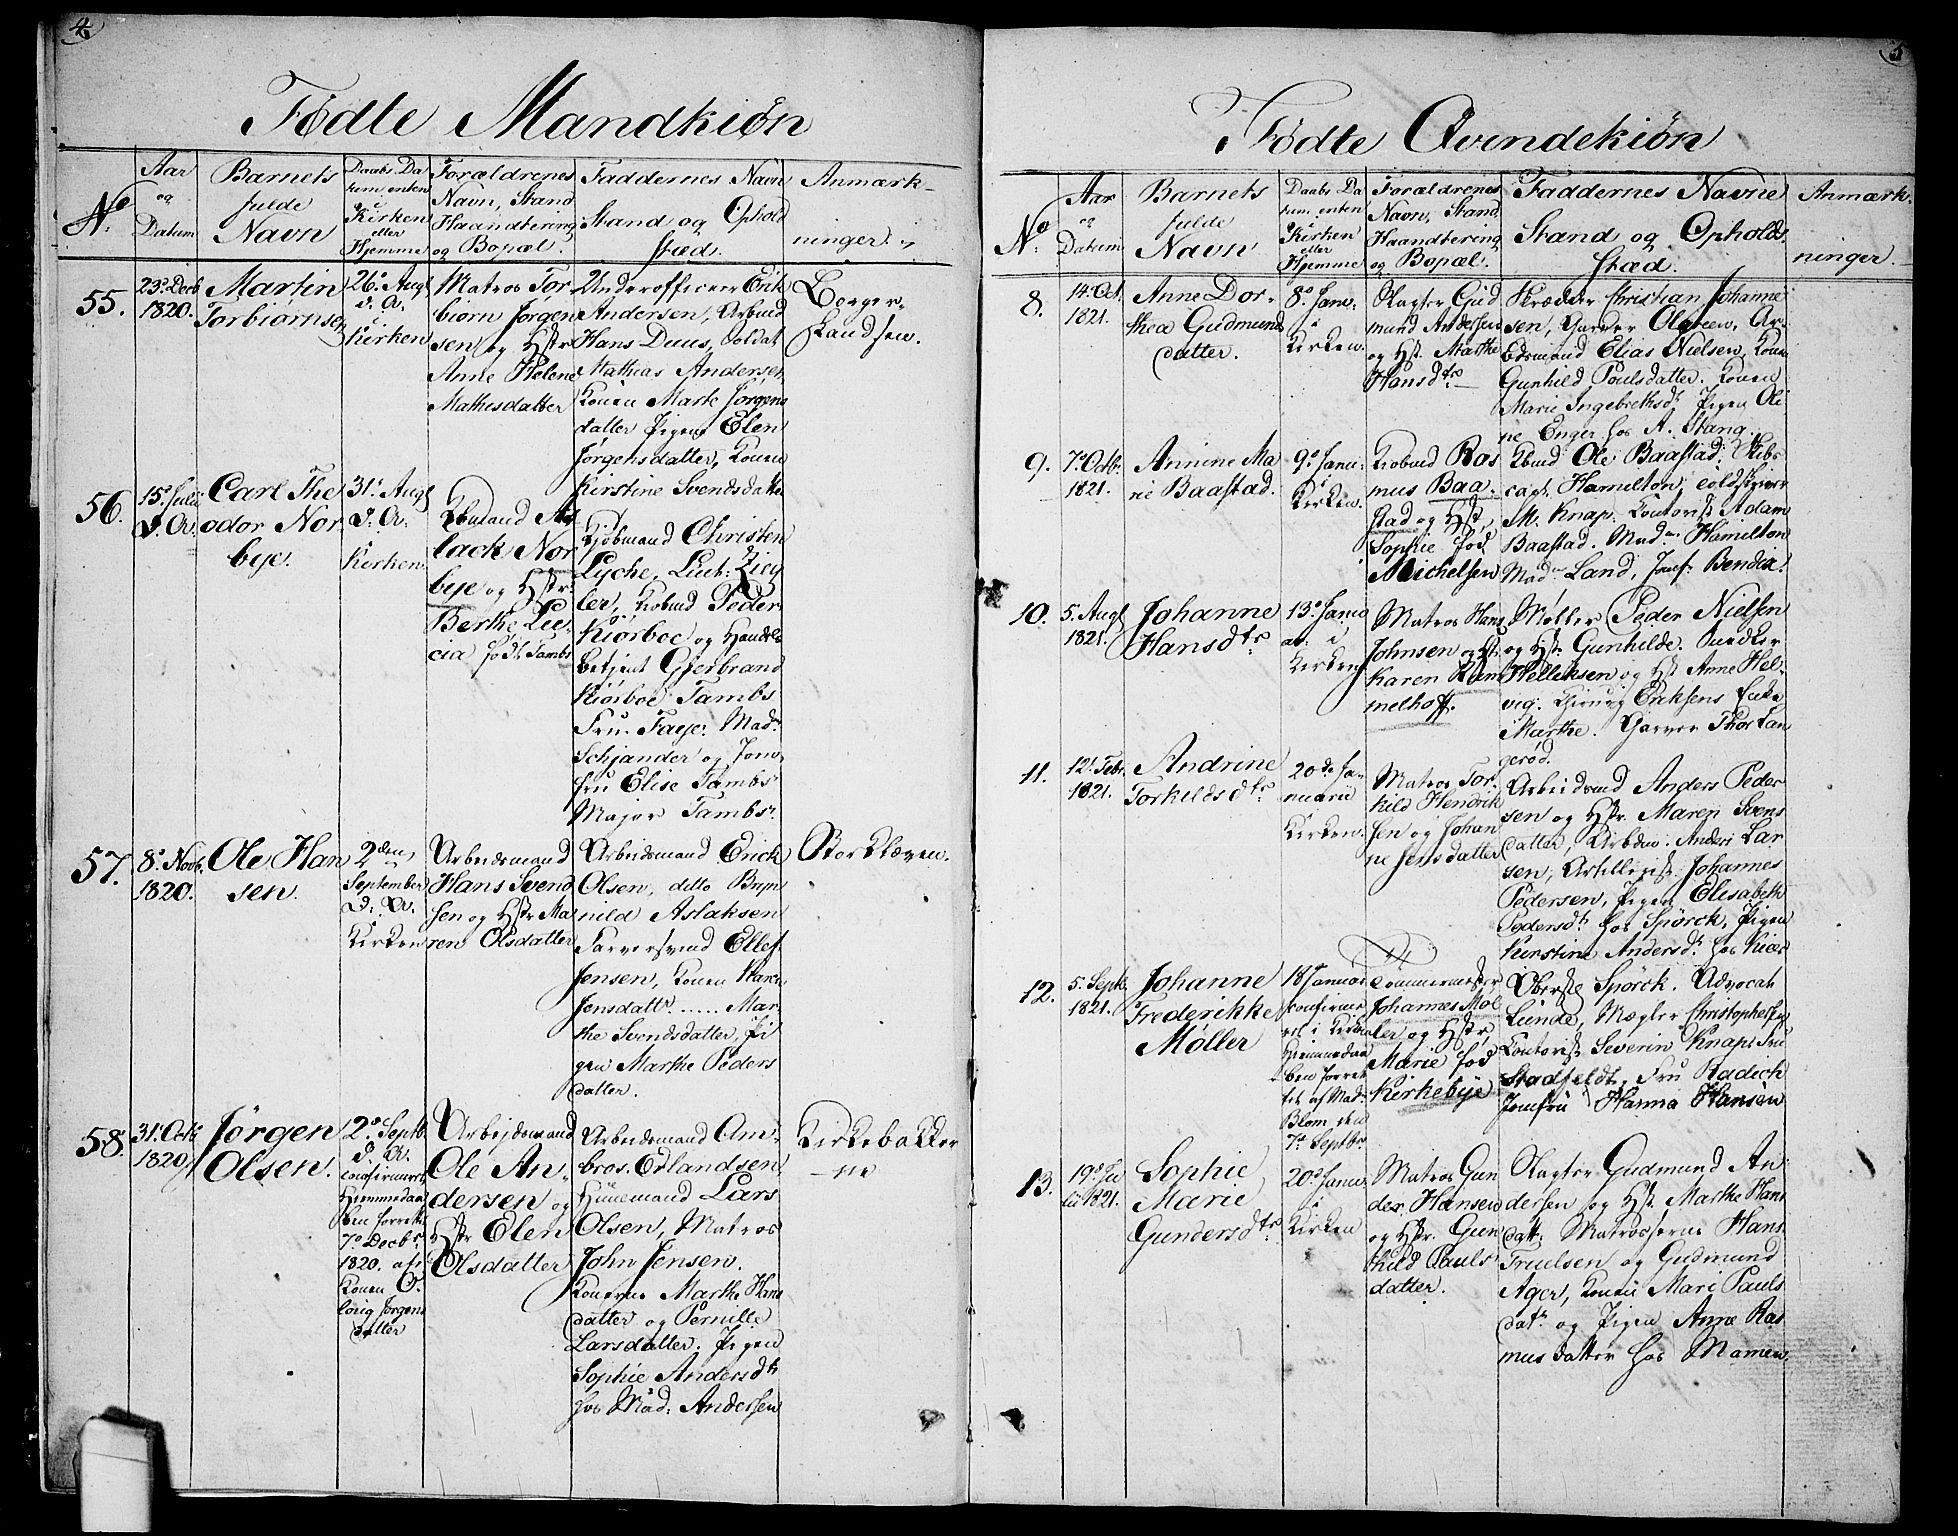 4.
Fødte Mandkiøn
No.
Aar
og
Datum
Barnets
fulde
Navn
Daabs Da
tum enten
i
Kirken
eller
Hjemme
Forældrenes
Navn, Stand
Haandtering
og Bopæl.
Faddernes Navn
Stand og Ophold
stæd.
Anmærk-
ninger.
55.
23de Decb
1820.
Martin
Torbiørnsen
26. Augt
d. A.
Kirken
Matros Tor
biørn Jørgen
sen og Hstr
Anne Helene
Mathisdatter
Underofficeer Erik
Andersen, Arbmd
Hans Duus, Soldat
Mathias Andersen,
Konen Marte Jørgens
datter Pigen Elen
Jørgensdatter, Konen
Kirstine Svendsdatter
56.
15. Juli
d. A.
Carl The
odor Nor
bye.
31. Augt
d. A.
Kirken.
Kbmand As
lack Nor
bye og Hstr
Berthe Lu-
cia født Tambs
Kjøbmand Christen
Lycke, Lieut: Zieg
ler, Kobmd Peder
Kiørboe og Handels
betjent Gjerbrand
Kiørboe Tambs
Fru Faye. Madm
Schjander og Jom
fru Elise Tambs
Major Tambs.
57.
8. Novb.
1820.
Ole Han
sen.
2den
September
d. A.
Kirken
Arbeidsmand
Hans Svend
sen og Hstr Ma
ren Olsdatter
Arbeidsmand Erick
Olsen, ditto Bryn
nild Aslaksen
Farversvend Ellef
Jensen, Konen Karen
Jensdattr ..... Mar
the Svendsdatter, Pi
gen Marthe Peders
datter.
Storkleven.
58.
31. Octb
1820
Jørgen
Olsen.
2. Septb.
d. A.
confirmert
Hjemmedaa
ben forrettet
7. Decbr
1820. af
Konen O
lovig Jørgens
datter
Arbejdsmand
Ole An-
dersen og
Hstr Elen
Olsdatter
Arbeidsmand Am-
bros. Erlandsen,
Huusmand Lars
Olsen, Matros
John Jensen.
Konerne Marthe Hans
datter og Pernille
Larsdatter. Pigen
Sophie Andersdtr
hos Mad: Andersen
Kirkebakker
ne
5
Fødte Qvindekiøn
No.
Aar
og
Datum
Barnets
fulde
Navn
Daabs Da
tum enten
i Kirken
eller
Hjemme
Forældrenes
Navn, Stand
Haandtering
og Bopæl.
Faddernes Navne
Stand og Opholds
stæd.
Anmærk-
ninger.
8.
14. Oct.
1821.
Anne Dor-
thea Gudmunds
datter.
8. Janu.
i
Kirken.
Slagter Gud
mund Andersen
og Hstr. Marthe
Hansdtr
Skrædder Christian Johanne
sen, Garver Olgreen, Ar-
bdsmand Elias Nielsen, Konen
Gunhild Poulsdatter. Konen
Marie Ingebrethsdr Pigen Oli
ne Enger hos A. Stang.
9.
7. Octb.
1821.
Annine Ma
rie Baastad.
9. Janu:
i
Kirken.
Kobmd Ras
mus Baa-
stad og Hstr
Sophie fød
Michelsen
Kbmd Ole Baastad. Skibs
capt. Hamilton, Toldskriver
M. Knap. Kontorist Adam
Baastad. Madm Hamilton
Madm Land, Jomf. Bendix.
10.
5. Augt
1821.
Johanne
Hansdtr
13. Janu
ar i
Kirken
Matros Hans
Johnsen og Hstr
Karen Rom
melhoff.
Møller Peder Nielsen
og Hstr Gunhilde. Snedker
Helliksen og Hst Anne Hel-
vig. Eriksens Enke
Marthe. Garver Thor Lan
gerød.
11.
12. Febr.
1821.
Andrine
Torkildsdtr
20de Ja-
nuarii
Kirken.
Matros Tor-
kild Hendrik
sen og Johan
ne Jensdatter
Arbeidsmd Anders Peder
sen og Hstr Maren Svens
datter, Arbdm. Anders Lar
sen, Artillerist Johannes
Pedersen, Pigen Elisabeth
Pedersdr hos Spørck, Pigen
Kirstine Andersdr hos Kiær
12.
5. Septb.
1821.
Johanne
Frederikke
Møller
18 Januar
confirme
ret i Kirken
Hiemmedaa
ben forret
tet af Madm
Blom, den
7. Septbr.
Tømmermester
Johannes Møl
ler og Hstr
Marie fød
Kirkebye
Oberst Spørck. Advocat
Lunde, Mægler Christophersen
Contorist Severin Knap. Fru
Stadfeldt, Fru Radich
Jomfru Hanna Hansen
13.
19. Ju
lii 1821.
Sophie
Marie
Gundersdtr
20. Janu.
i
Kirken
Matros Gun
der Hansen
og Hstr. Gun
hild Pauls
datter.
Slagter Gudmund An-
dersen og Hstr. Marthe Hans
datt. Matroserne Hans
Truelsen og Gudmund
Ager, Konen Mari Pauls
datr og Pigen Anne Ras
mus datter hos Mamen.